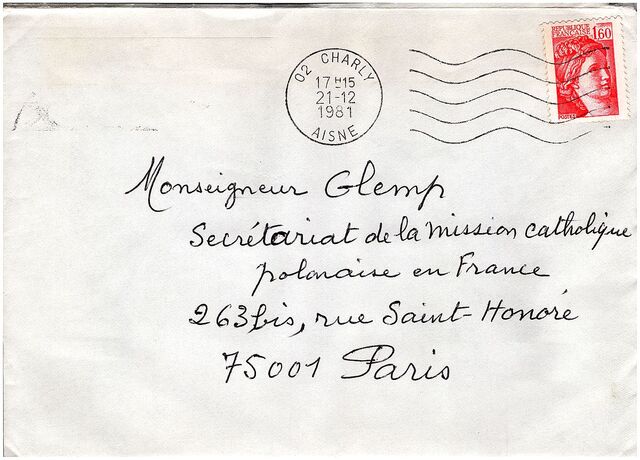 RÉPUBLIQUE
FRANÇAISE
1,60
POSTES
02 CHARLY
17H15
21-12
1981
AISNE
Monseigneur Glemp
Secrétariat de la Mission catholique
polonaise en France
263 bis, rue Saint-Honoré
75001 Paris